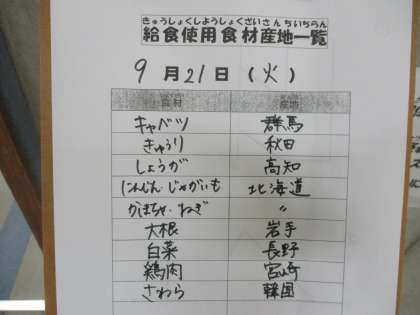 きゅうしょくしようしょくざいさんちいちらん
給食使用食材産地一覧
9月21日(火)
食材 産地
キャベツ 群馬
きゅうり 秋田
しょうが 高知
にんじん・じゃがいも 北海道
かぼちゃ・ねぎ 〃
大根 岩手
白菜 長野
鶏肉 宮崎
さわら 韓国